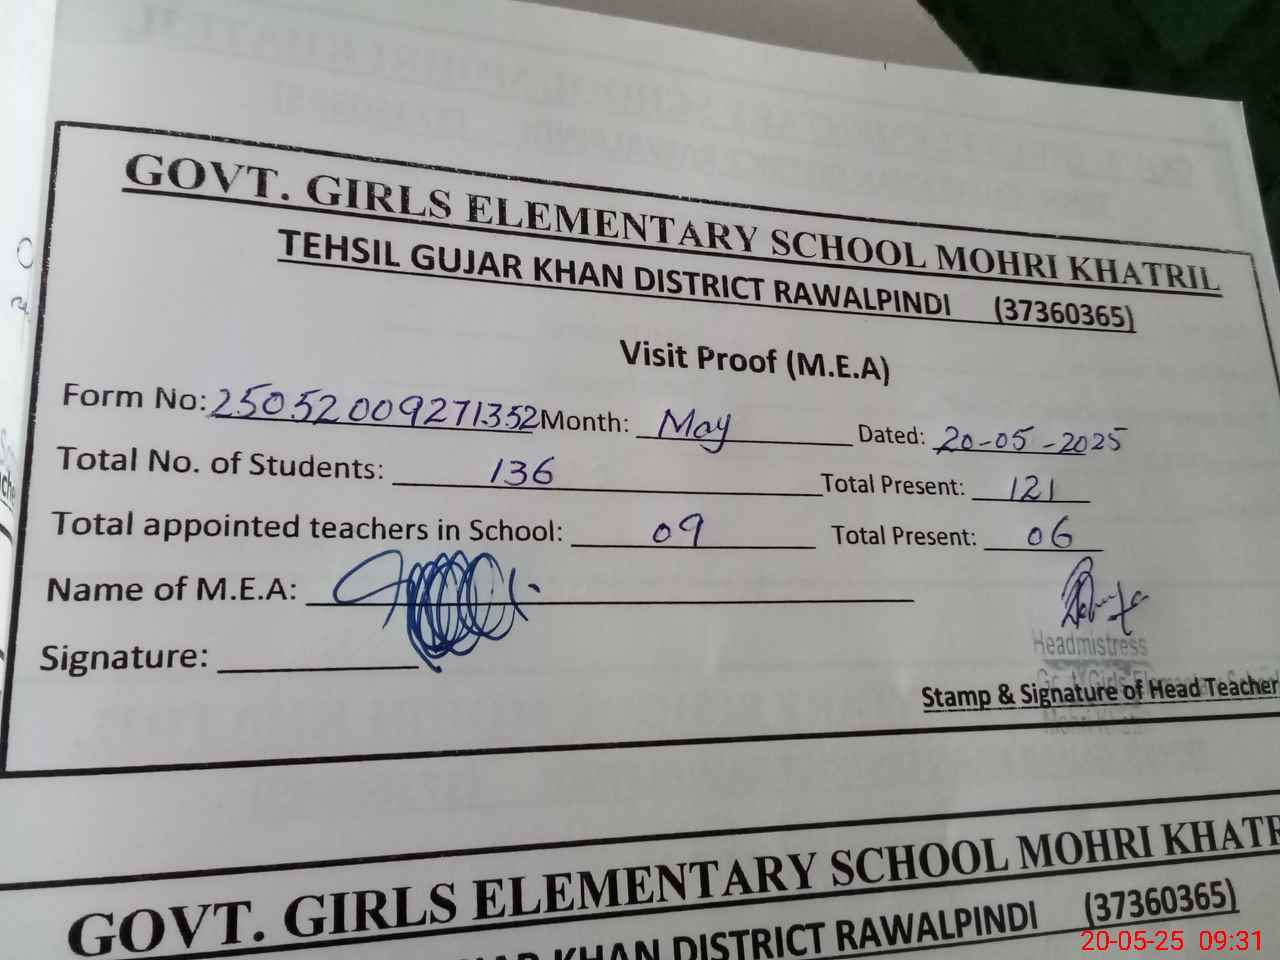 GOVT. GIRLS ELEMENTARY SCHOOL MOHRI KHATRIL
TEHSIL GUJAR KHAN DISTRICT RAWALPINDI (37360365)
Visit Proof (M.E.A)
Form No: 25052009271352 Month: May Dated: 20-05-2025
Total No. of Students: 136 Total Present: 121
Total appointed teachers in School: 09 Total Present: 06
Name of M.E.A:
Signature:
Headmistress
Stamp & Signature of Head Teacher
GOVT. GIRLS ELEMENTARY SCHOOL MOHRI KHATR
KHAN DISTRICT RAWALPINDI (37360365)
20-05-25 09:31